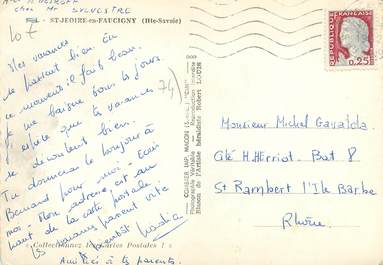 chez Mr SYLVESTRE
ST-JEOIRE-en-FAUCIGNY (Hte-Savoie)
10F
Mes vacances
se passent bien. En
ce moment il fait beau.
je me baigne tous les jours.
J'espère que tes vacances
se déroulent bien.
Tu donneras le bonjour à
Bernard pour moi - Ecris
moi - Mon adresse est au
haut de la carte postale
les vacances passent vite
à bientôt
« Collectionnez les Cartes Postales ! »
Amitiés à tes parents.
74)
COMBIER IMP. MACON
Photographie Véritable - Reproduction interdite
Blason de l'Artiste héraldiste Robert LOUIS
REPUBLIQUE FRANCAISE
0,25
Monsieur Michel Gavalda
Cité H. Herriot. Bat 8
St Rambert l'Ile Barbe
Rhône.